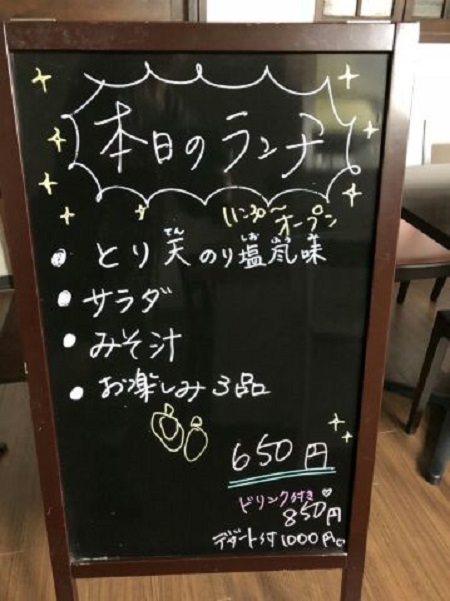 本日のランチ
11:30〜
オープン
・とり天のり塩風味
てん しお ふう み
・サラダ
・みそ汁
・お楽しみ3品
650円
ドリンク付き
850円
デザート付1000円